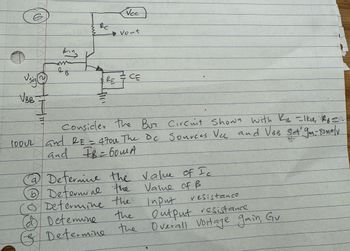 6
Vcc
Rc
Vout
Rin
RB
Vsig
RE
CE
VBB
Consider the BJT Circuit Shown with Rc = 1kΩ, RB =
100Ω and RE = 470Ω The DC Sources Vcc and VBB set gm=50mA/V
and IB = 60uA
(a) Determine the value of Ic
(b) Determine the Value of B
(c) Determine the Input resistance
(d) Determine the Output resistance
(e) Determine the Overall Voltage gain Gv